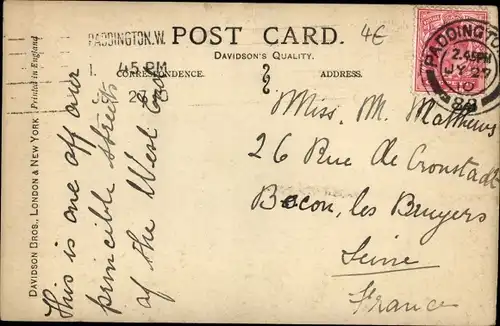 PADDINGTON.W.
POST CARD.
4€
DAVIDSON'S QUALITY.
1. 45 PM
27
CORRESPONDENCE.
ADDRESS.
PADDINGTON
2.45PM
JY 27
10
DAVIDSON BROS., LONDON & NEW YORK. Printed in England
This is one off our
princible streets
of the West End
Miss. M. Matthews
26 Rue de Cronstadt
Becon, les Bruyers
Seine
France